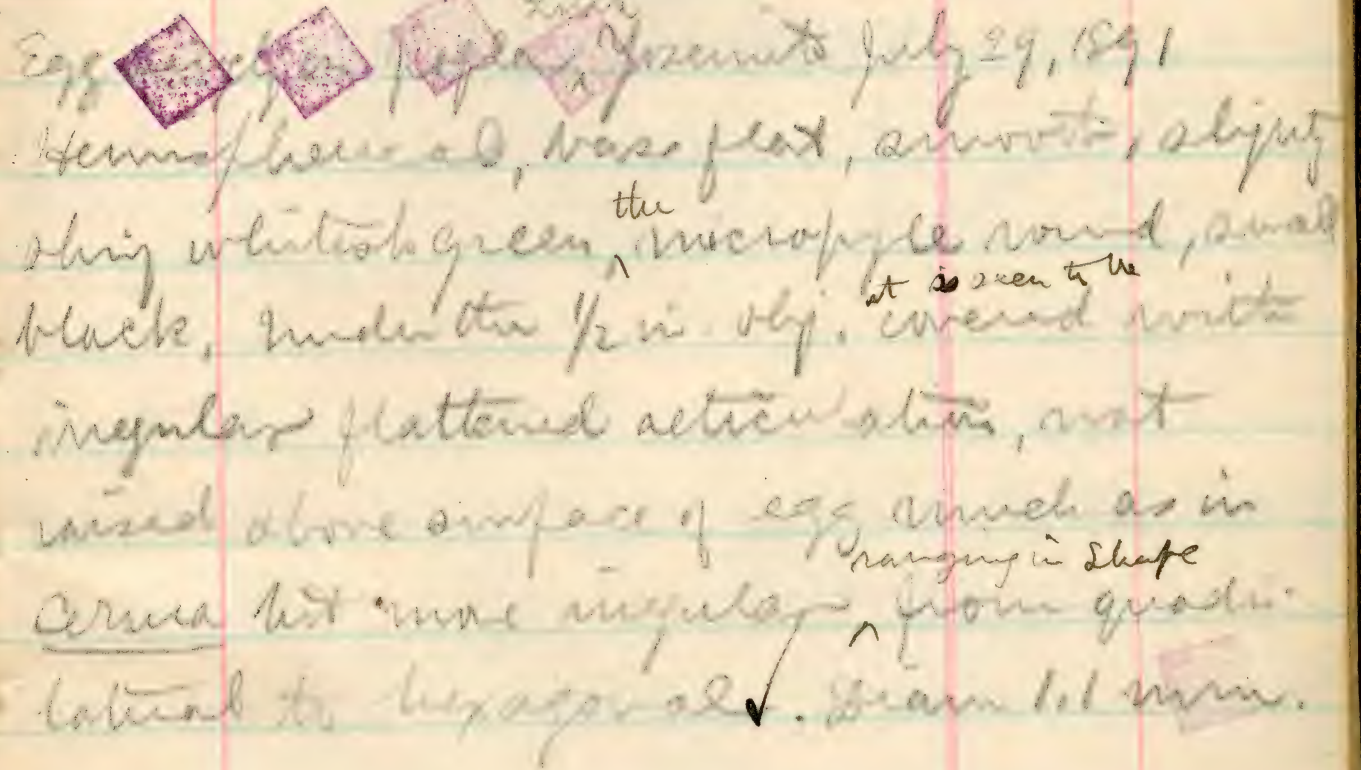 Egg Yosemite July 29, 1891
Hemispherical, base flat, smooth, slightly
shiny whitish green, the micropyle round, small
black. Under the 1/2 in. obj. it is seen to be covered with
irregular flattened reticulation, not
raised above surface of egg much as in
Cerura but more irregular ranging in shape from quadri-
lateral to hexagonal. Diam 1.1 mm.